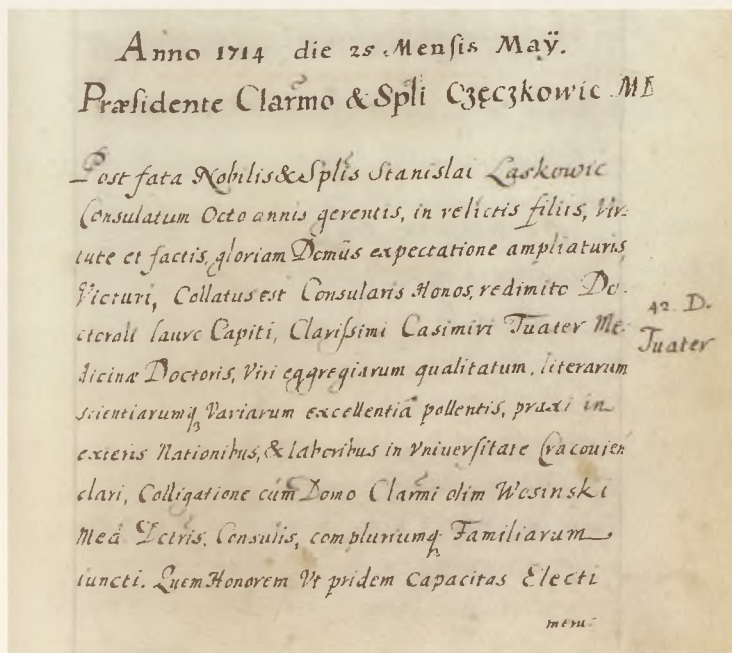 Anno 1714 die 25 Mensis Maÿ.
Præsidente Clarmo & Spli Częczkowic MD
Post fata Nobilis & Splis Stanislai Laskowic
Consulatum Octo annis gerentis, in relictis filiis, Vir-
tute et factis, gloriam Domûs expectatione ampliaturis,
Victuri, Collatus est Consularis Honos, redimito Do-
ctorali lauro Capiti, Clarissimi Casimiri Tuater Me-
dicinæ Doctoris, Viri eggregiarum qualitatum, literarum
scientiarumq Variarum excellentiâ pollentis, praxi in
exteris Nationibus, & laboribus in Vniversitate Cracovien
clari, Colligatione cum Domo Clarmi olim Wosinski
Med Dctris. Consulis, compluriumq Familiarum
iuncti. Quem Honorem Vt pridem Capacitas Electi
meru-
42. D.
Tuater